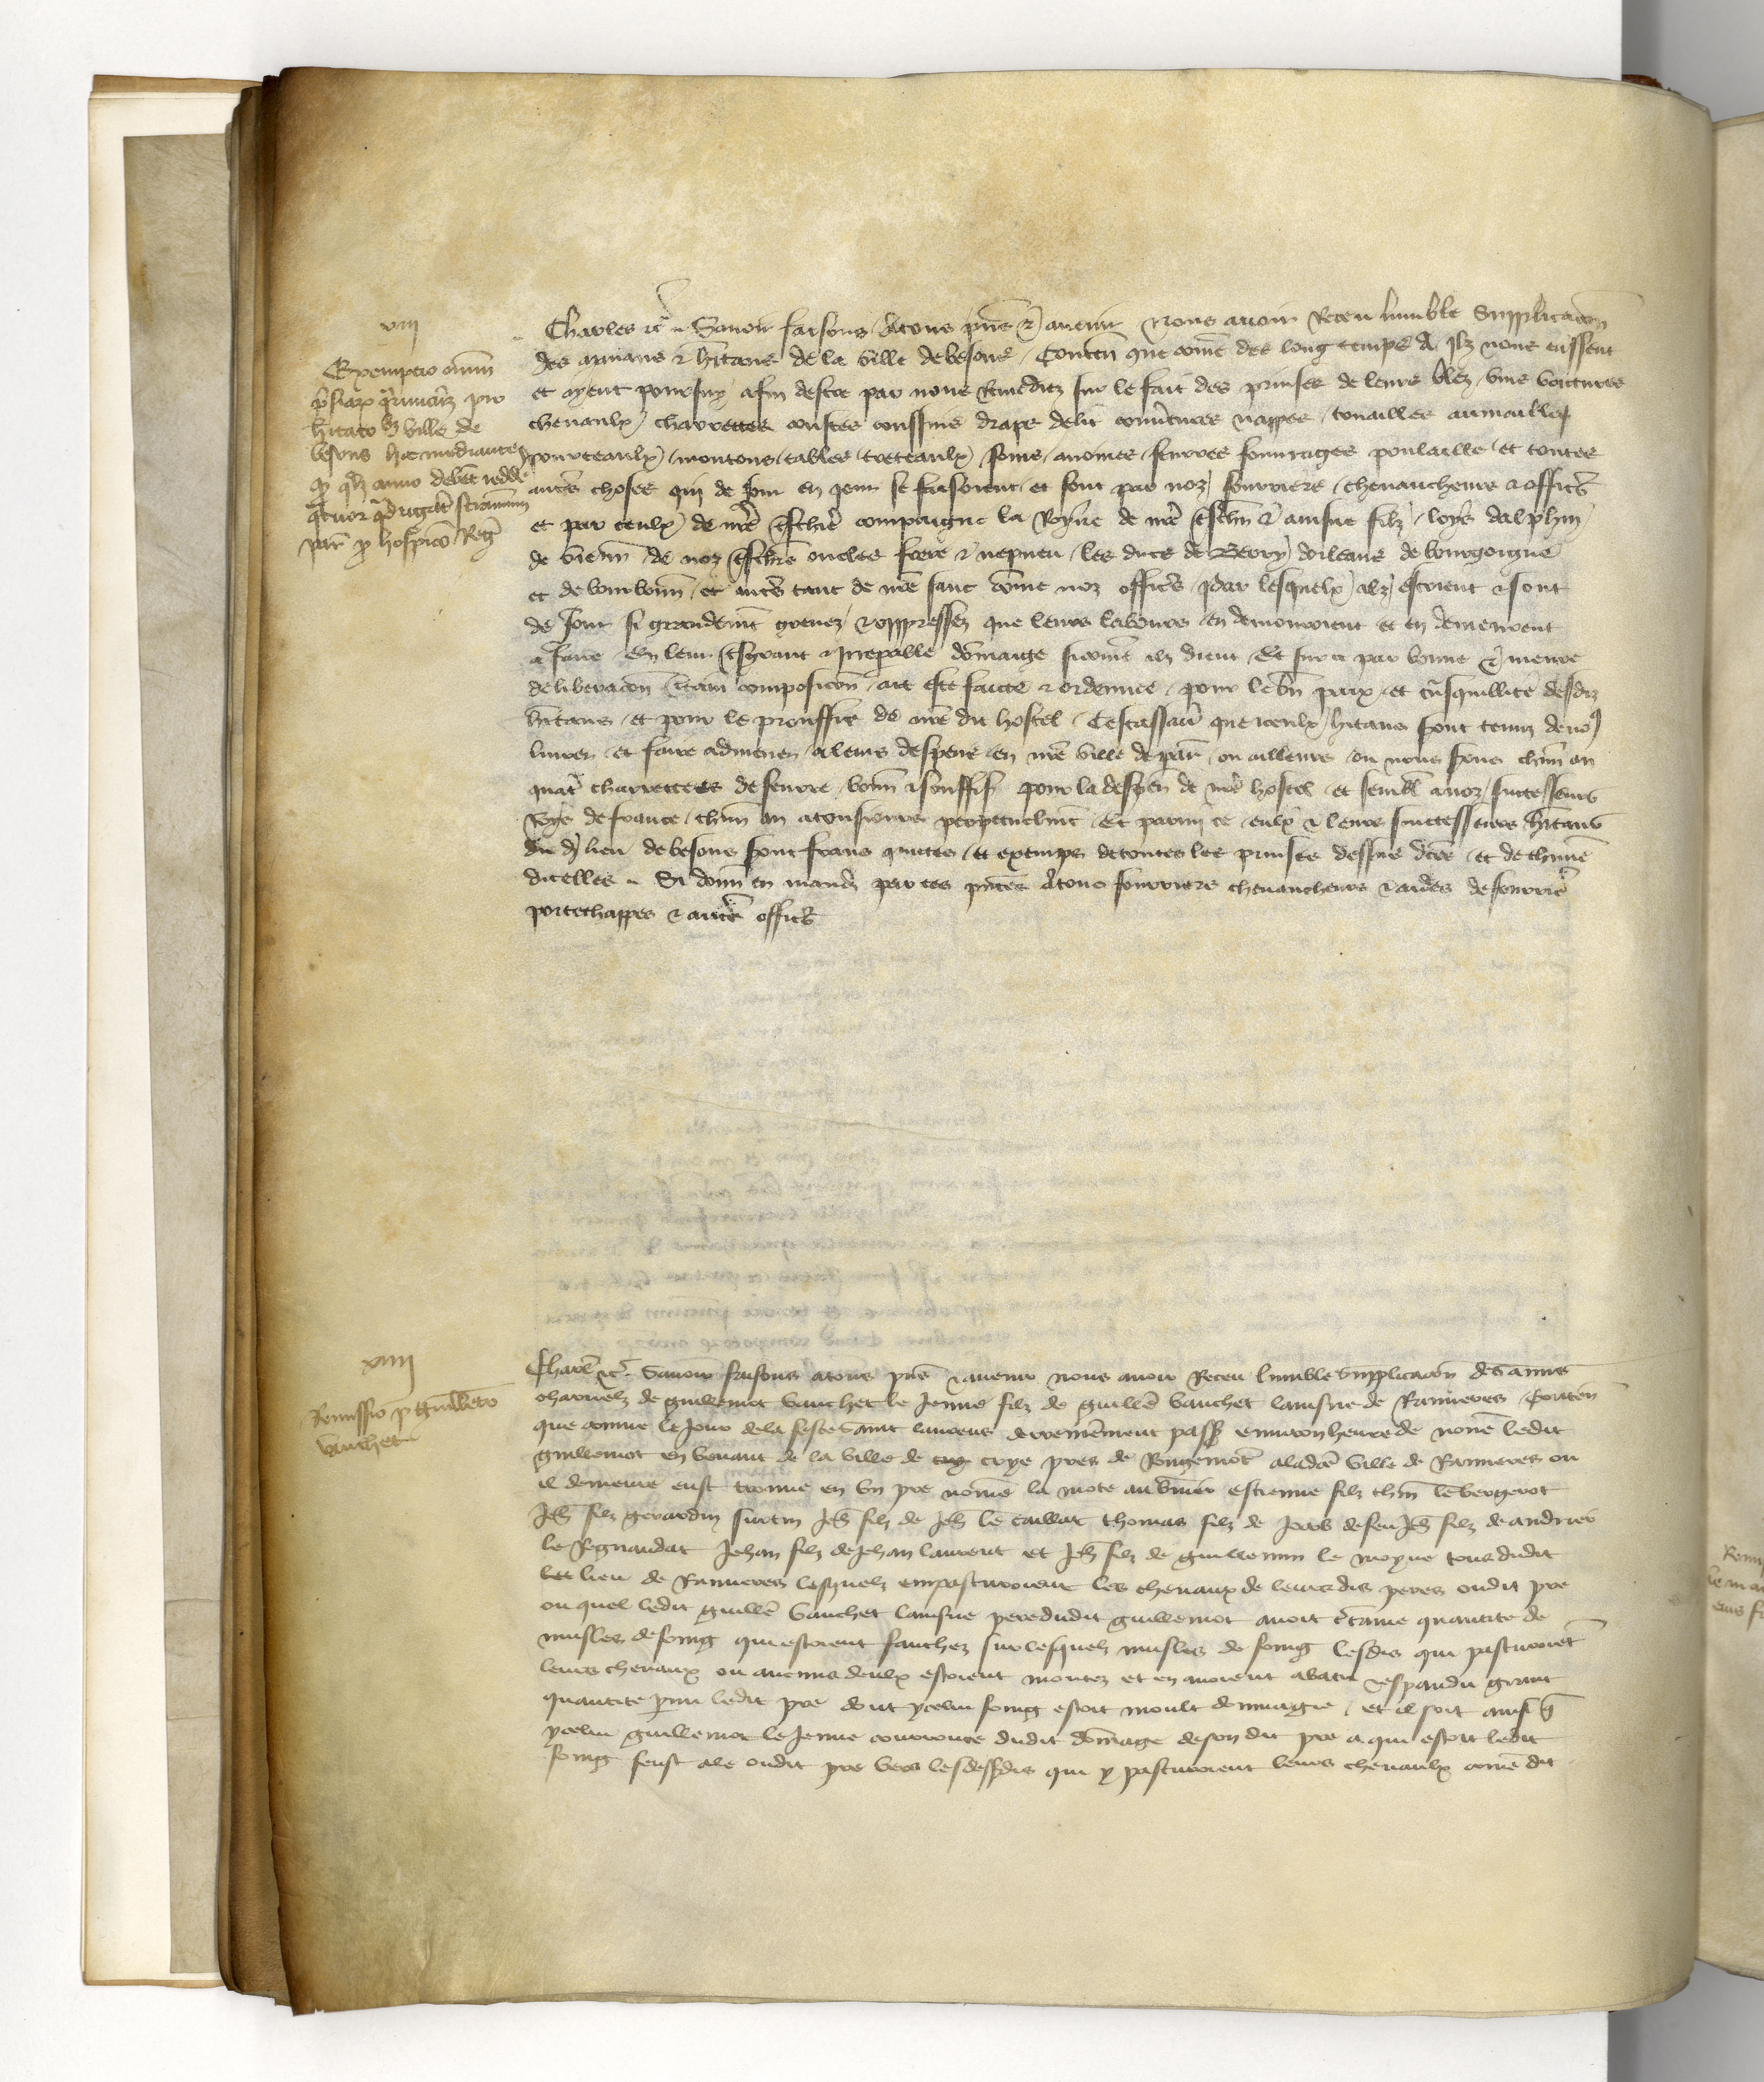 viii
Exempcio omnium
prisiarum pro
hitatoribus ville de
besons hac mediante
quod quolibet anno debent reddere
quatuor quadrigatas straminum
par pro hospicio Regis
Charles etc Savoir faisons Atous pns et avenir Nous avoir Receu lumble Supplicacion
des manans et hitans de la ville de besons Contenant que come des long temps A Ilz nous eussent
et ayent poursuy afin destre par nous Remediez sur le fait des prinses de leurs blez vins voictures
chevaulx charrettes coustes coussins draps delit couvertures nappes touailles aumailles
pourceaulx moutons tables tresteaulx foins avoines feurres fourrages poulaille et toutes
autres choses qui de jour en jour se faisoient et font par noz fourriers chevaucheurs et officiers
et par ceulx de nre treschiere compaigne la Royne de nre treschier et ainsne filz loys dalphin
de vienn de noz treschiers oncles frere et nepveu les ducs de Berry dorleans de bourgoigne
et de bourbonn et autres tant de nre sanc come noz officiers par lesquelx ilz estoient et sont
de Jour si grandement grevez et oppressez que leurs labours en demouroient et en demeurent
a faire En leur tresgrant et Irreparable domaige sicome ilz dient Et sur ce par bonne et meure
deliberacion certain composicion ait este faicte et ordennee pour le bien paix et transquillite desdiz
hitans et pour le prouffit de nre dit hostel Cestassavoir que iceulx hitans sont tenuz de nous
livrer et faire admener aleurs despens en nre ville de par ou ailleurs ou nous serons chun an
quatre charrettees de feurre bonn et souffis pour la despen de nre hostel et sembl a noz successeurs
Roys de france chun an atousjours perpetuelment Et parmi ce eulx et leurs successeurs hitans
du dit lieu de besons sont frans quittes et exemps detoutes les prinses dessus dictes et de chune
dicelles Si donn en mandement par ces pntes Atous fourriers chevaucheurs et aides de fourriere
portechappes et autres officiers
xiiii
Remissio pro Guillermo
vauchet
Charles etc Savoir faisons atous pns et avenir nous avoir Receu lumble supplicacion des amis
charnelz de guillemot vauchet le Jeune filz de guille vauchet lainsne de Rainieres Contenant
que comme le Jour dela feste saint laurens derrenierement passe environ heure de nonne ledit
guillemot en venant de la ville de crye pres de Rougemont aladicte ville de Rainieres ou
il demeure eust trouve en un pre nomme la mote au vivier estienne filz le bergerot
Jeh filz gerardin Jeh filz de Jeh le thomas filz de defeu Jeh filz de andrier
le Regnaudat Jehan filz deJehan laurent et Jeh filz de guillemin le moyne tous dudit
lieu de Rainieres lesquelz empasturoient les chevaux de leurs dis peres oudit pre
ou quel ledit guille vauchet lainsne pere dudit guillemot avoit certaine quantite de
musles de foing qui estoient fauchez sur lesquelz musles de foing lesdis qui pasturoient
leurs chevaux ou aucuns deulx estoient montez et en avoient abatu et espandu grant
quantite parmi ledit pre dont ycelui foing estoit moult dommagie et il soit ainsi que
ycelui guillemot le Jeune courroucie dudit dommage de son dit pere a qui estoit ledit
foing feust ale oudit pre vers lesdessusdis qui y pasturoient leurs chevaulx comme dit